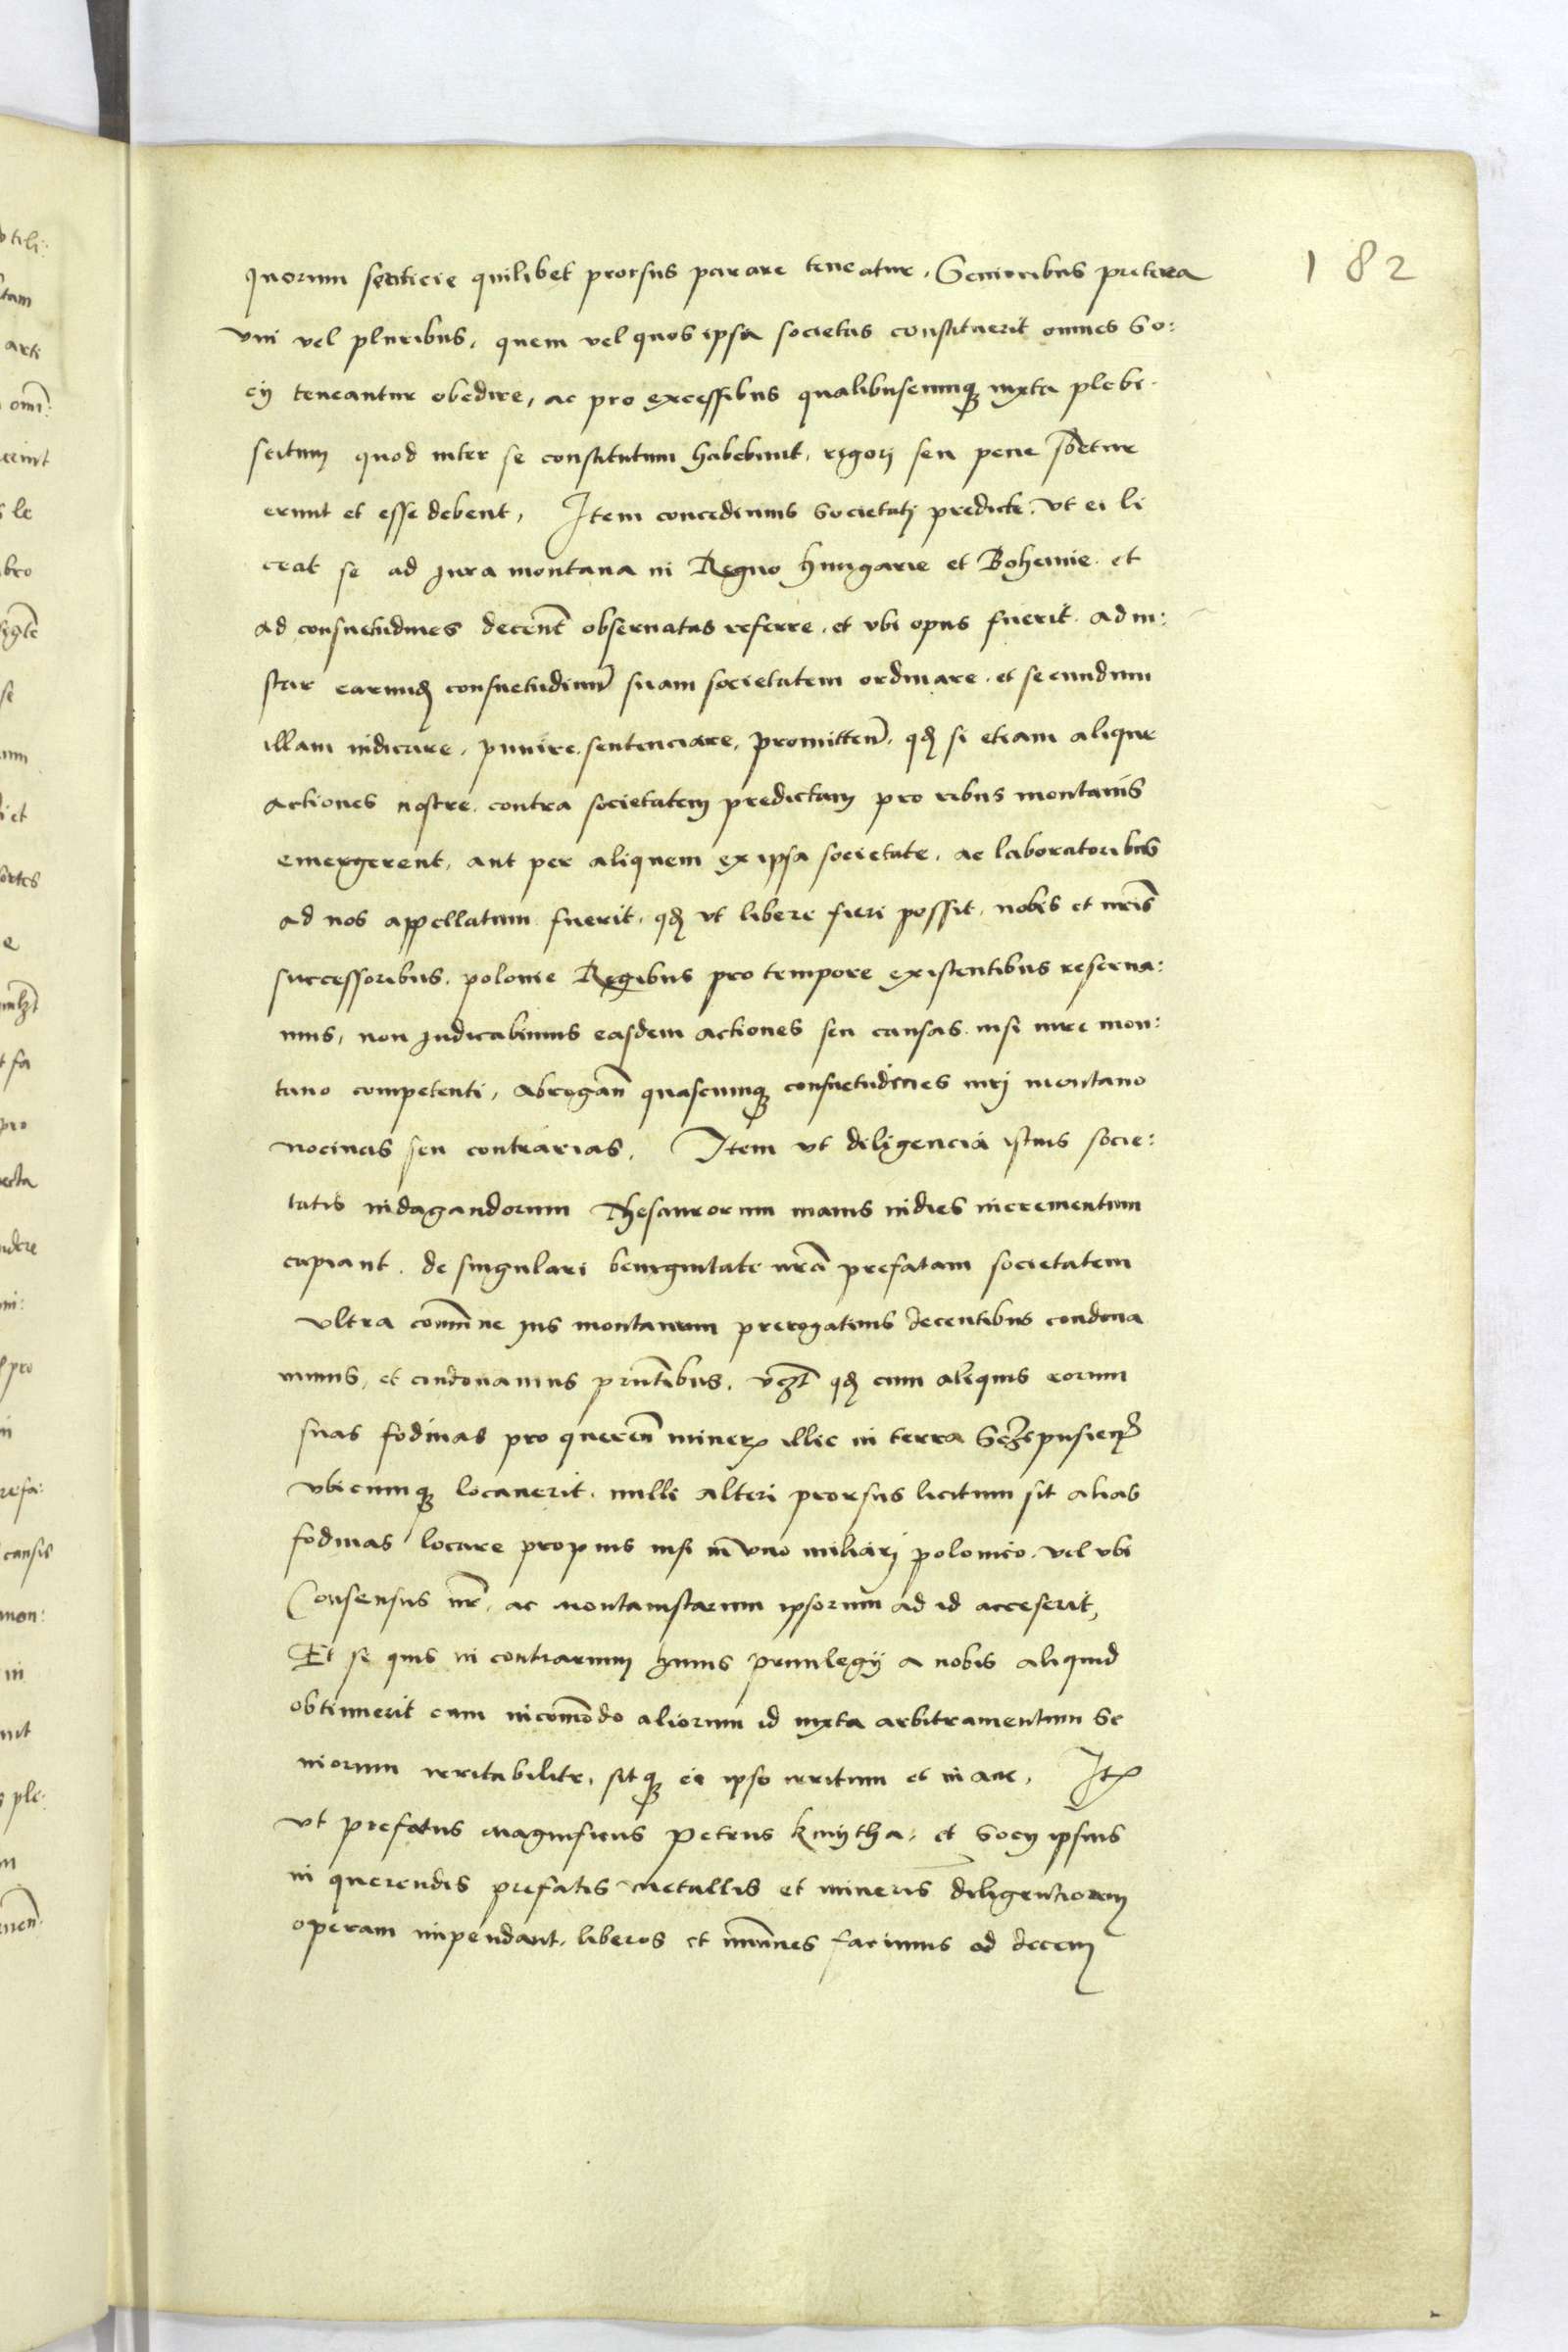 182
quorum sentencie quilibet prorsus parare teneatur. Senioribus preterea
vni vel pluribus, quem vel quos ipsa societas constituerit omnes So:
cij teneantur obedire, ac pro excessibus qualibuscumq iuxta plebi
scitum quod inter se constitutum habebunt, rigori seu pene
erunt et esse debent, Item concedimus Societatj predicte vt ei li
ceat se ad Jura montana in Regno Hungarie et Bohemie et
ad consuetudines decent obseruatas referre, et vbi opus fuerit ad in:
star earund consuetudinum suam societatem ordinare et secundum
illam iudicare, punire, sentenciare, promitten, qd si etiam alique
actiones nostre contra societatem predictam pro rebus montanis
emergerent, aut per aliquem ex ipsa societate, ac laboratoribus
ad nos appellatum fuerit, qd vt libere fieri possit, nobis et nris
successoribus polonie Regibus pro tempore existentibus reserua:
mus, non Judicabimus easdem actiones seu causas nisi iure mon:
tano competenti, abrogan quascumq consuetudines iurj montano
nociuas seu contrarias. Item vt diligencia istius socie:
tatis indagandorum Thesaurorum maius indies incrementum
capiant, de singulari benignitate nra prefatam societatem
vltra commune Jus montanum prerogatiuis decentibus condona
uimus, et condonamus pntibus, vzt qd cum aliquis eorum
suas fodinas pro queren miner illic in terra
vbicumq locauerit, nulli alteri prorsus licitum sit alias
fodinas locare propius nisi in vno miliarj polonico, vel vbi
Consensus nr, ac montanistarum ipsorum ad id accesserit,
Et se quis in contrarium huius priuilegij a nobis aliquid
obtinuerit cum incomodo aliorum id iuxta arbitramentum Se
niorum irritabilitr, sitq eo ipso irritum et inane, Itm
vt prefatus magnificus Petrus Kmytha, et Socij ipsius
in querendis prefatis metallis et mineris diligentiorem
operam impendant, liberos et immunes facimus ad decem